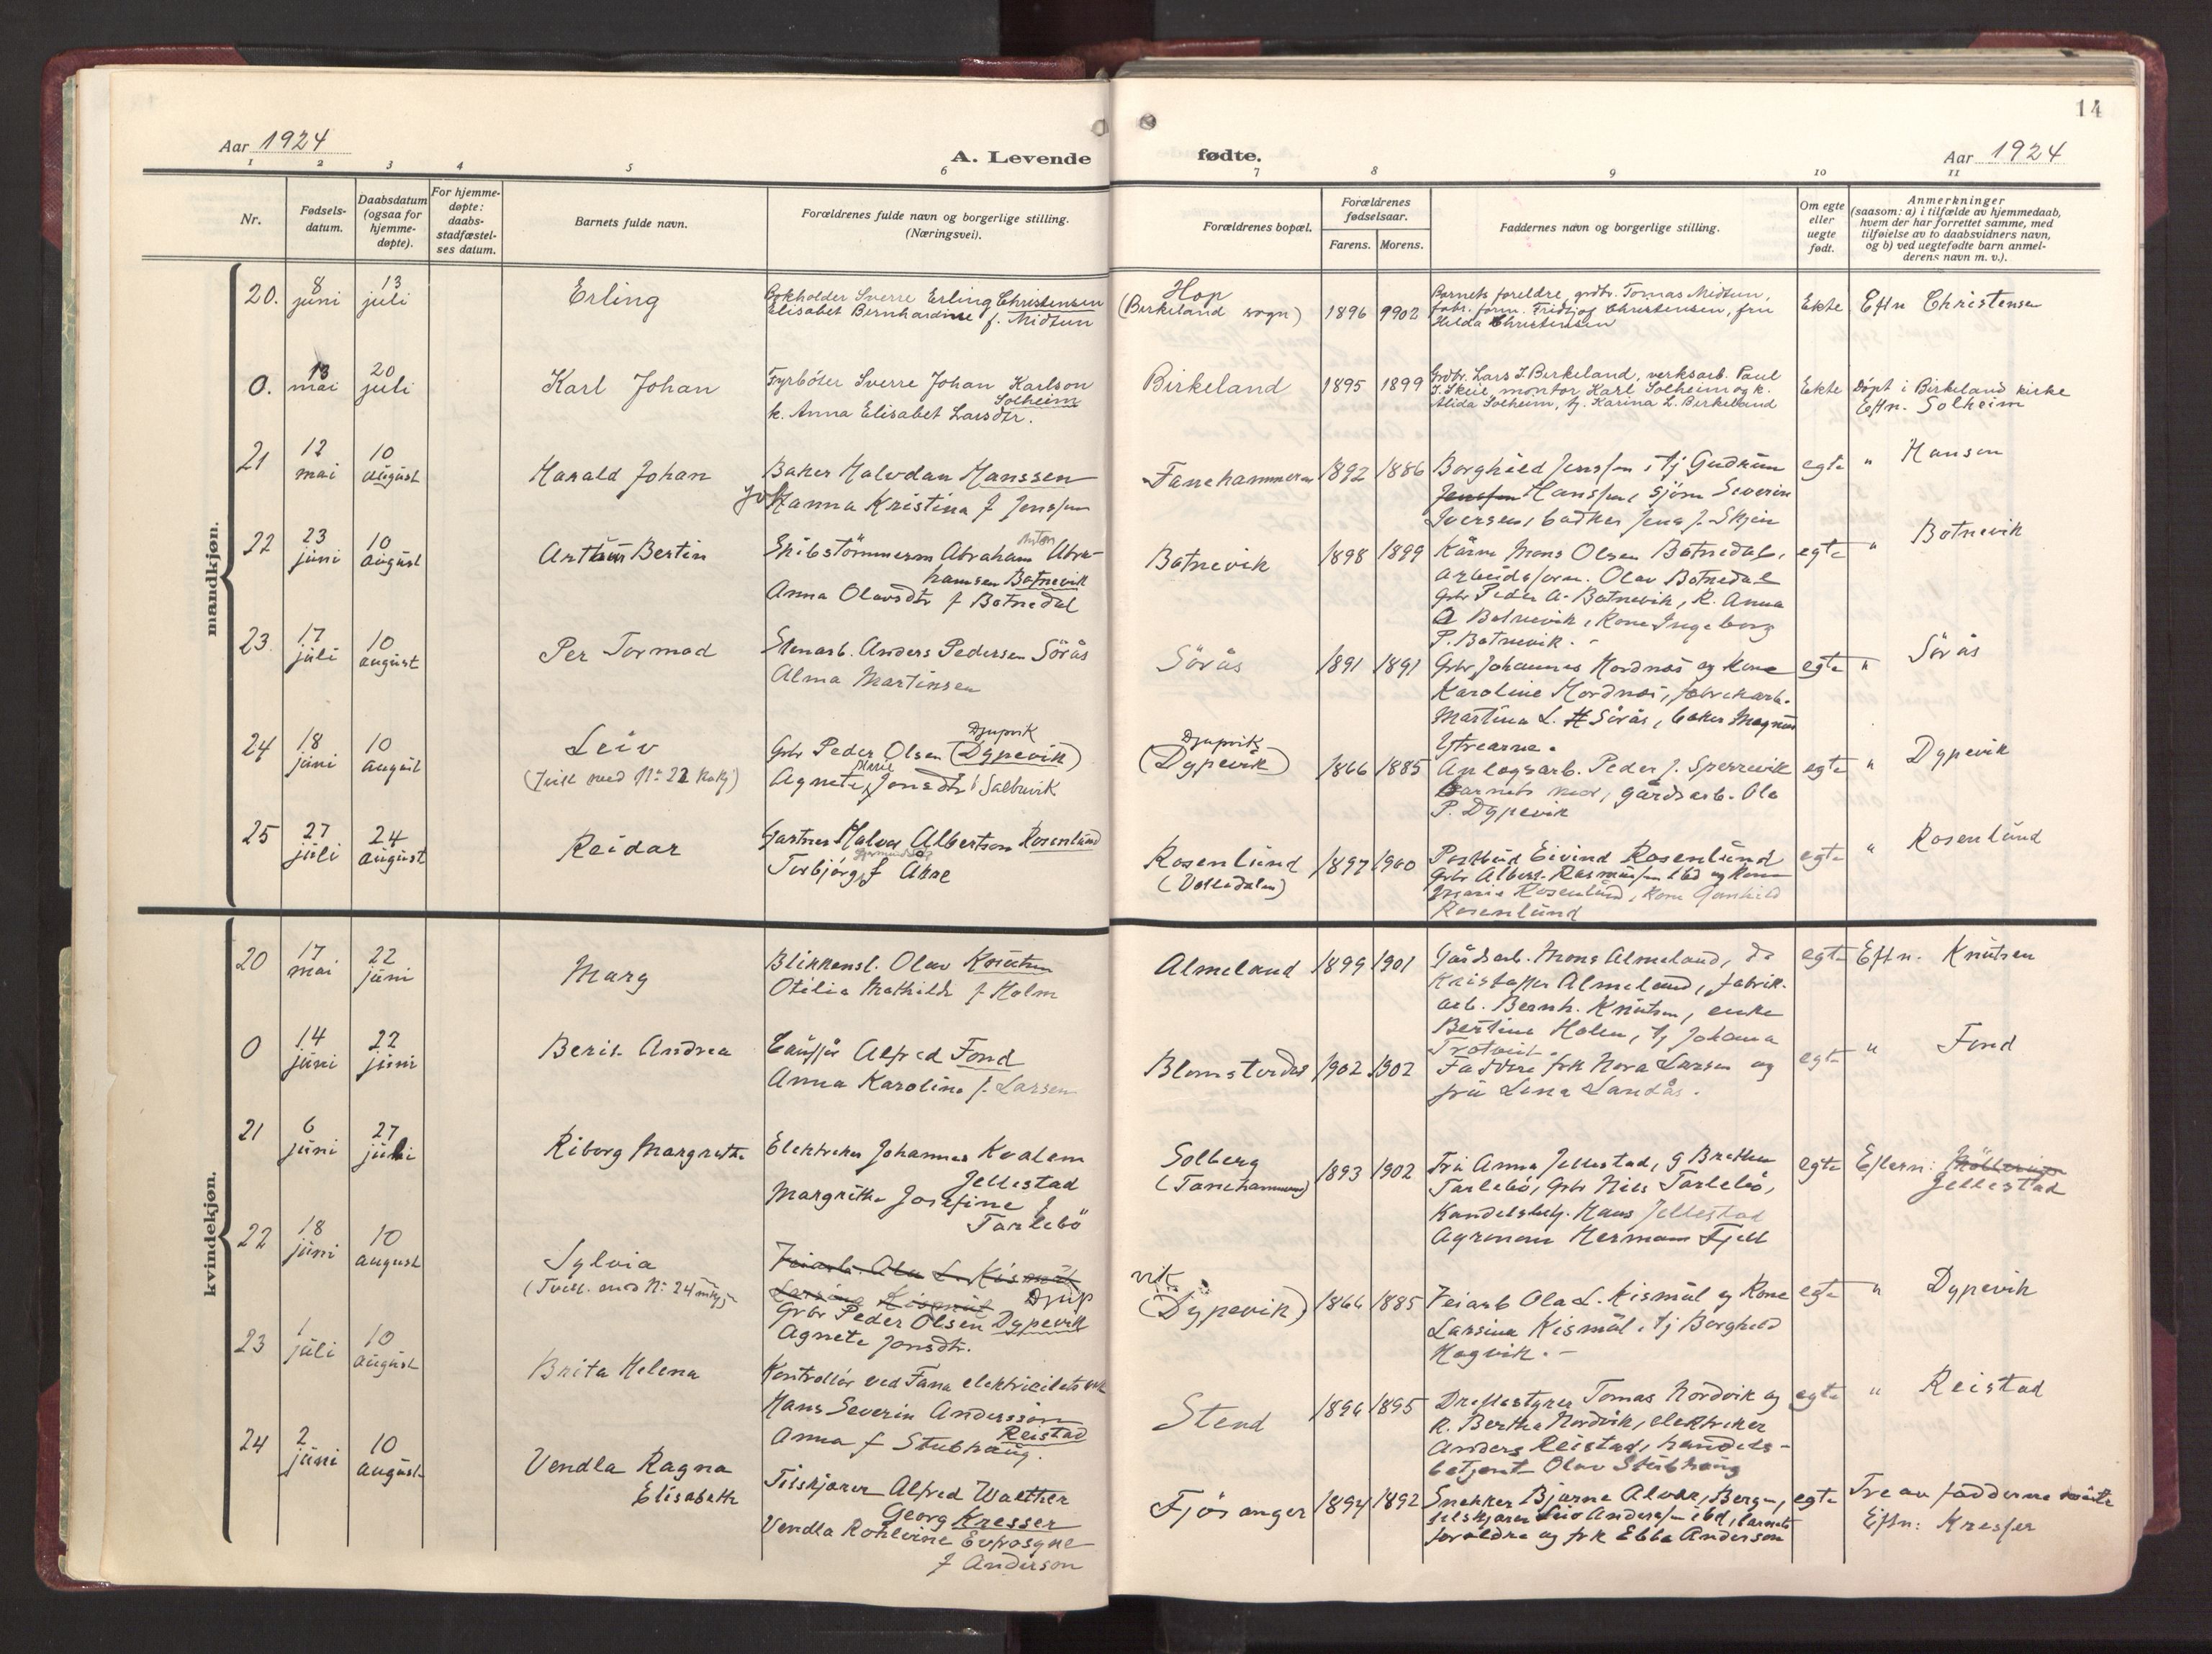 14
Aar 1924
A. Levende
fødte.
Aar 1924
1 2 3 4 5 6 7 8 9 10 11
Nr.
Fødsels-
datum.
Daabsdatum
(ogsaa for
hjemme-
døpte).
For hjemme-
døpte:
daabs-
stadfæstel-
ses datum.
Barnets fulde navn.
Forældrenes fulde navn og borgerlige stilling.
(Næringsvei).
Forældrenes bopæl.
Forældrenes
fødselsaar.
Farens. Morens.
Faddernes navn og borgerlige stilling.
Om egte
eller
uegte
født.
Anmerkninger
(saasom: a) i tilfælde av hjemmedaab,
hvem der har forrettet samme, med
tilføielse av to daabsvidners navn,
og b) ved uegtefødte barn anmel-
derens navn m. v.).
mandkjøn.
20. 8 juni 13 juli
Erling
Bokholder Sverre Erling Christensen
Elisabet Bernhardine f. Midtun
Hop
(Birkeland sogn)
1896 1902
Barnets foreldre, grdbr. Tomas Midtun,
fabr. form. Fridtjof Christensen, fru
Hilda Christensen
Ekte
Eftn Christensen
0. 13 mai 20 juli
Karl Johan
Fyrbøter Sverre Johan Karlson
Solheim
k. Anna Elisabet Larsdtr.
Birkeland
1895 1899
Grdbr. Lars I. Birkeland, verksarb. Paul
I. Skeie, montør Karl Solheim og k.
Alida Solheim, tj. Karina L. Birkeland
Ekte
Døpt i Birkeland kirke
Eftn. Solheim
21 12 mai 10 august
Harald Johan
Baker Halvdan Hanssen
Johanna Kristina f Jenssen
Fanehammeren
1892 1886
Borghild Jenssen, tj Gudrun
Jenssen Hanssen, sjøm Severin
Iversen, badker Jens J. Skjen
egte
" Hansen
22 23 juni 10 august
Arthur Bertin
Skibstømmerm Abraham Anton Abra-
hamsen Botnevik
Anna Olavsdtr f Botnedal
Botnevik
1898 1899
Kårm Mons Olsen Botnedal,
Arbeidsform. Olav Botnedal
Gbr Peder A. Botnevik, K. Anna
A Botnevik, Kone Ingeborg
P. Botnevik. -
egte
" Botnevik
23. 17 juli 10 august
Per Tormod
Stenarb. Anders Pedersen Sörås
Alma Martinsen
Sörås
1891 1891
Gbr Johannes Hordnes og Kone
Karoline Hordnes, fabrikarb.
Martina L. H Sörås, baker Magnus
Ytrearne.
egte
" Sörås
24 18 juni 10 august
Leiv
(Tvill med Nr 22 kvkj)
Djupvik
Gbr Peder Olsen (Dypevik)
Agnete Marie Jonsdtr f Salbuvik
Djupvik
(Dypevik)
1866 1885
Anlegsarb. Peder J. Sperrevik
barnets mor, gårdsarb. Ola
P. Dypevik
egte
" Dypevik
25 27 juli 24 august
Reidar
Gartner Halvor Albertson Rosenlund
Torbjörg f Åhre
Rosenlund
(Valledalen)
1897 1900
Postbud Eivind Rosenlund
Gbr Albert Rasmussen ibd og kone
Marie Rosenlund, kone Gunhild
Rosenlund
egte
" Rosenlund
kvindekjøn.
20 17 mai 22 juni
Marg
Blikkensl. Olav Knutsen
Otilia Mathilde f Holm
Almeland
1899 1901
Gårdsarb. Mons Almeland, do
Kristoffer Almeland, fabrik-
arb. Bernh. Knutsen, enke
Bertine Holm, tj Johanna
Trotveit.
egte
Eftn. Knutsen
0 14 juni 22 juni
Beris Andrea
Alfred Fond
Anna Karoline f. Larsen
Blomsterdal
1902 1902
Faddere frk Nora Larsen og
fru Lena Landås.
egte
" Fond
21 6 juni 27 juli
Riborg Margrethe
Elektriker Johannes Kvalem
Jellestad
Margrethe Josefine f
Tarlebö
Solberg
(Fanehammeren)
1893 1902
Fru Anna Jellestad, G Brethen
Tarlebö, Gbr Nils Tarlebö,
Handelsbetj. Hans Jellestad
Agronom Herman Fjell
egte
Eftern:
Jellestad
22 18 juni 10 august
Sylvia
(Tvill. med Nr 24 mkj)
Veiarb. Ola L. Kismul
Larsina Kismul
Djup
Gbr Peder Olsen Dypevik
Agnete Jonsdtr.
vik
(Dypevik)
1866 1885
Veiarb Ola L. Kismul og Kone
Larsina Kismul, tj Borghild
Hagvik. -
egte
" Dypevik
23 1 juli 10 august
Brita Helena
Kontrollør ved Fana elektricitetsverk
Hans Severin Anderssön
Reistad
Anna f Stubhaug.
Stend
1896 1895
Driftsstyrer Tomas Nordvik og
K. Bertha Nordvik, elektriker
Anders Reistad, handels-
betjent Olav Stubhaug
egte
" Reistad
24 2 juni 10 august
Vendla Ragna
Elisabeth
Tilskjærer Alfred Walther
Georg Kresser
Vendla Rohlvine Evprosyne
f Anderson
Fjösanger
1894 1892
Snekker Bjarne Alver, Bergen,
tilskjærer Leo Andersen ibd, barnets
foreldre og frk Ebba Anderson
egte
Tre av fadderne
Eftn: Kresser